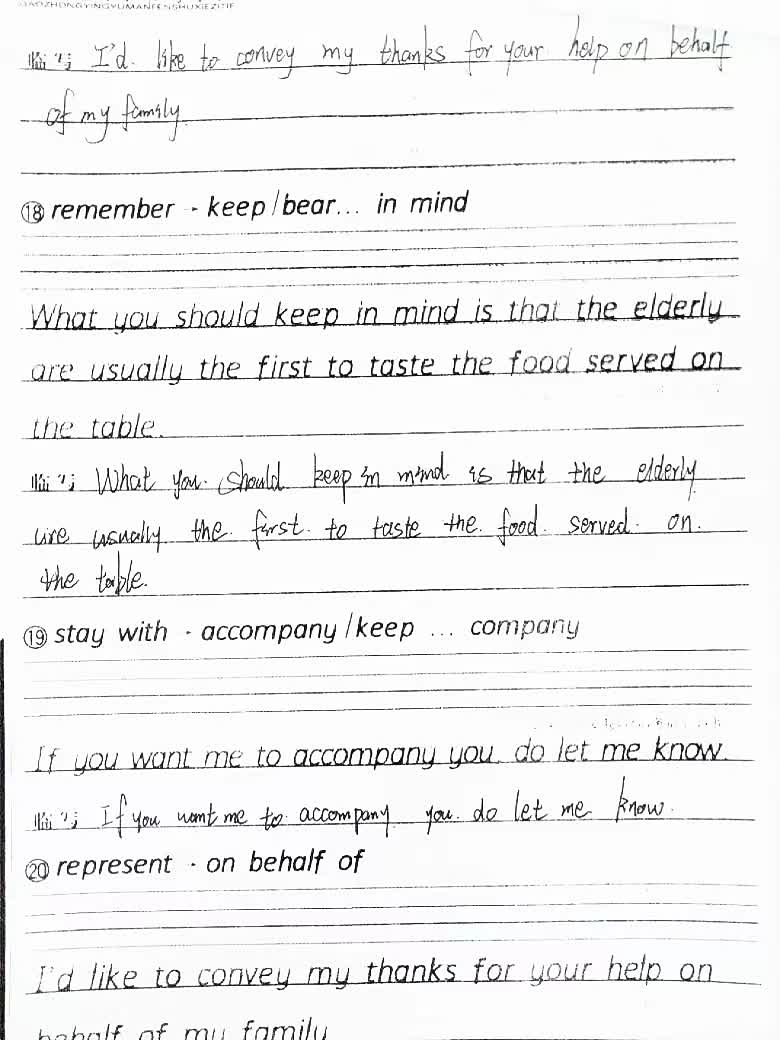 GAOZHONGYINGYUMANFENSHUXIEZITIE
临写 I'd like to convey my thanks for your help on behalf
of my family.
⑱ remember - keep/bear... in mind
What you should keep in mind is that the elderly
are usually the first to taste the food served on
the table.
临写 What you should keep in mind is that the elderly
are usually the first to taste the food served on
the table.
⑲ stay with - accompany/keep ... company
If you want me to accompany you, do let me know.
临写 If you want me to accompany you. do let me know.
⑳ represent - on behalf of
I'd like to convey my thanks for your help on
behalf of my family